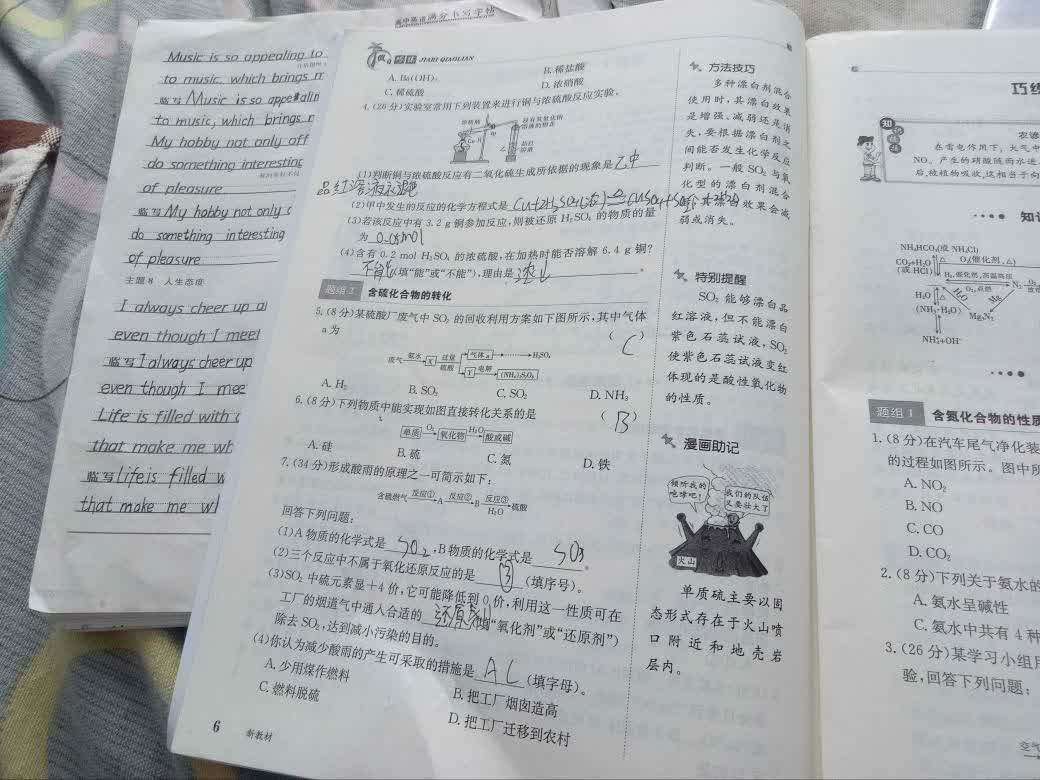 高中英语满分书写字帖
Music is so appealing to
to music, which brings m
临写 Music is so appealin
to music, which brings
My hobby not only off
do something interesting
of pleasure
临写 My hobby not only
do something interesting
of pleasure
主题 8 人生态度
I always cheer up
even though I meet
临写 I always cheer up
even though I mee
Life is filled with
that make me wh
临写 Life is filled w
that make me wh
JIARI QIAOLIAN
A. Ba(OH)₂
B. 稀盐酸
C. 稀硫酸
D. 浓硝酸
4. (26分)实验室常用下列装置来进行铜与浓硫酸反应实验。
(1)判断铜与浓硫酸反应有二氧化硫生成所依据的现象是 乙中
品红溶液褪色
(2)甲中发生的反应的化学方程式是 Cu+2H₂SO₄(浓)≜CuSO₄+SO₂↑+2H₂O
(3)若该反应中有 3.2 g 铜参加反应,则被还原 H₂SO₄ 的物质的量
为 0.05mol
(4)含有 0.2 mol H₂SO₄ 的浓硫酸,在加热时能否溶解 6.4 g 铜?
不能 (填“能”或“不能”),理由是 。
题组 2 含硫化合物的转化
5. (8分)某硫酸厂废气中 SO₂ 的回收利用方案如下图所示,其中气体
a 为 ( C )
废气 氨水 X 过量硫酸 气体 a H₂SO₄
Y 电解 (NH₄)₂S₂O₈
A. H₂ B. SO₃ C. SO₂ D. NH₃
6. (8分)下列物质中能实现如图直接转化关系的是 ( B )
单质 O₂ 氧化物 H₂O 酸或碱
A. 硅 B. 硫 C. 氮 D. 铁
7. (34分)形成酸雨的原理之一可简示如下:
含硫燃气 反应① A 反应② B 反应③ H₂O 硫酸
回答下列问题:
(1)A 物质的化学式是 SO₂ ,B 物质的化学式是 SO₃ 。
(2)三个反应中不属于氧化还原反应的是 ③ (填序号)。
(3)SO₂ 中硫元素显+4 价,它可能降低到 0 价,利用这一性质可在
工厂的烟道气中通入合适的 还原剂 (填“氧化剂”或“还原剂”)
除去 SO₂,达到减小污染的目的。
(4)你认为减少酸雨的产生可采取的措施是 AC (填字母)。
A. 少用煤作燃料
B. 把工厂烟囱造高
C. 燃料脱硫
D. 把工厂迁移到农村
6 新教材
方法技巧
多种漂白剂混合
使用时,其漂白效果
是增强、减弱还是消
失,要根据漂白剂之
间能否发生化学反应
判断。一般 SO₂ 与氧
化型的漂白剂混合
后,其漂白效果会减
弱或消失。
特别提醒
SO₂ 能够漂白品
红溶液,但不能漂白
紫色石蕊试液,SO₂
使紫色石蕊试液变红
体现的是酸性氧化物
的性质。
漫画助记
倾听我的
咆哮吧!
我们的队伍
又要壮大了
火山
单质硫主要以固
态形式存在于火山喷
口附近和地壳岩
层内。
巧练
在雷电作用下,大气中
NO。产生的硝酸随雨水进
后,被植物吸收,这相当于向
知识
NH₄HCO₃(或 NH₄Cl)
CO₂+H₂O
(或 HCl)
O₂(催化剂,△)
H₂,催化剂,高温高压
N₂
O₂,点燃
H₂O
Mg
(NH₃·H₂O)
Mg₃N₂
NH₄⁺+OH⁻
题组 1 含氮化合物的性质
1. (8分)在汽车尾气净化装
的过程如图所示。图中所
A. NO₂
B. NO
C. CO
D. CO₂
2. (8分)下列关于氨水的
A. 氨水呈碱性
C. 氨水中共有 4 种
3. (26分)某学习小组用
验,回答下列问题:
空气